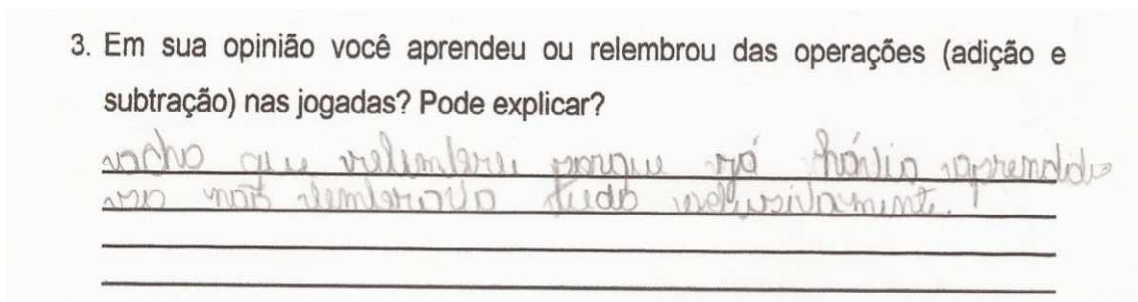 3. Em sua opinião você aprendeu ou relembrou das operações (adição e
subtração) nas jogadas? Pode explicar?
acho que relembrei porque já hávia aprendido
não lembrava tudo